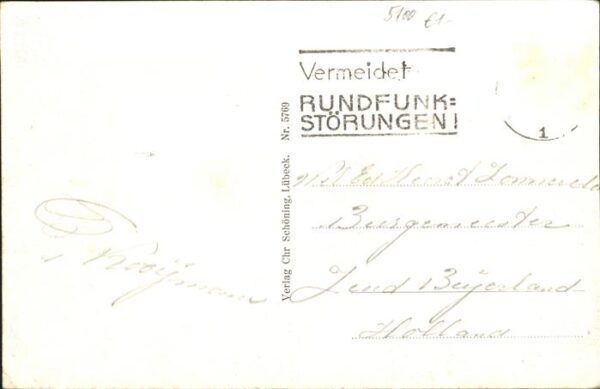 5100 €1-
Vermeidet
RUNDFUNK=
STÖRUNGEN!
1
Verlag Chr Schöning, Lübeck. Nr. 5760
Burgemeester
Zuid Beijerland
Holland
Kooijman